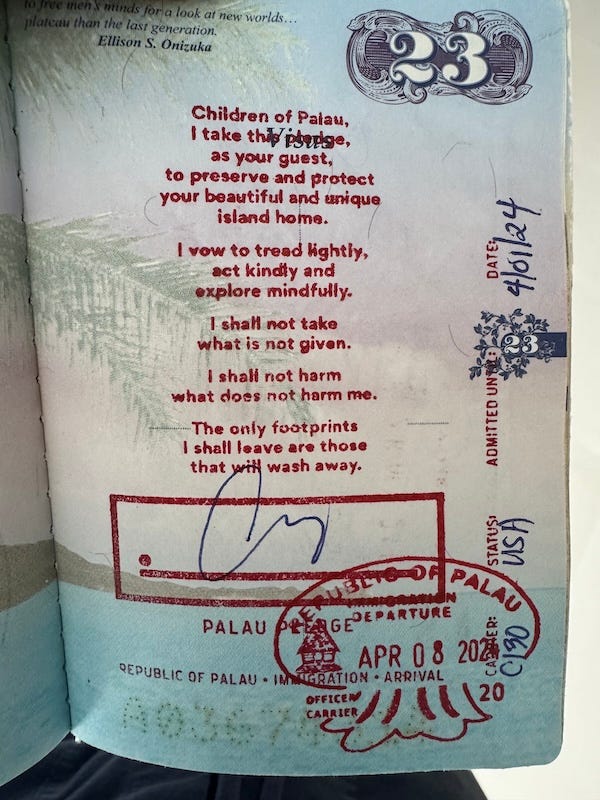 to free men's minds for a look at new worlds...
plateau than the last generation.
Ellison S. Onizuka
23
Visas
Children of Palau,
I take this pledge,
as your guest,
to preserve and protect
your beautiful and unique
island home.
I vow to tread lightly,
act kindly and
explore mindfully.
I shall not take
what is not given.
I shall not harm
what does not harm me.
The only footprints
I shall leave are those
that will wash away.
PALAU PLEDGE
REPUBLIC OF PALAU • IMMIGRATION • ARRIVAL
DATE: 4/01/24
23
ADMITTED UNTIL:
STATUS: USA
CARRIER: C130
REPUBLIC OF PALAU
IMMIGRATION
DEPARTURE
APR 08 2024
OFFICER
CARRIER
20